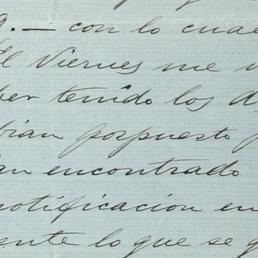 9. — con lo cua
El Viernes me v
ber tenido los d
bian porpuesto p
an encontrado
notificacion en
ente lo que se q